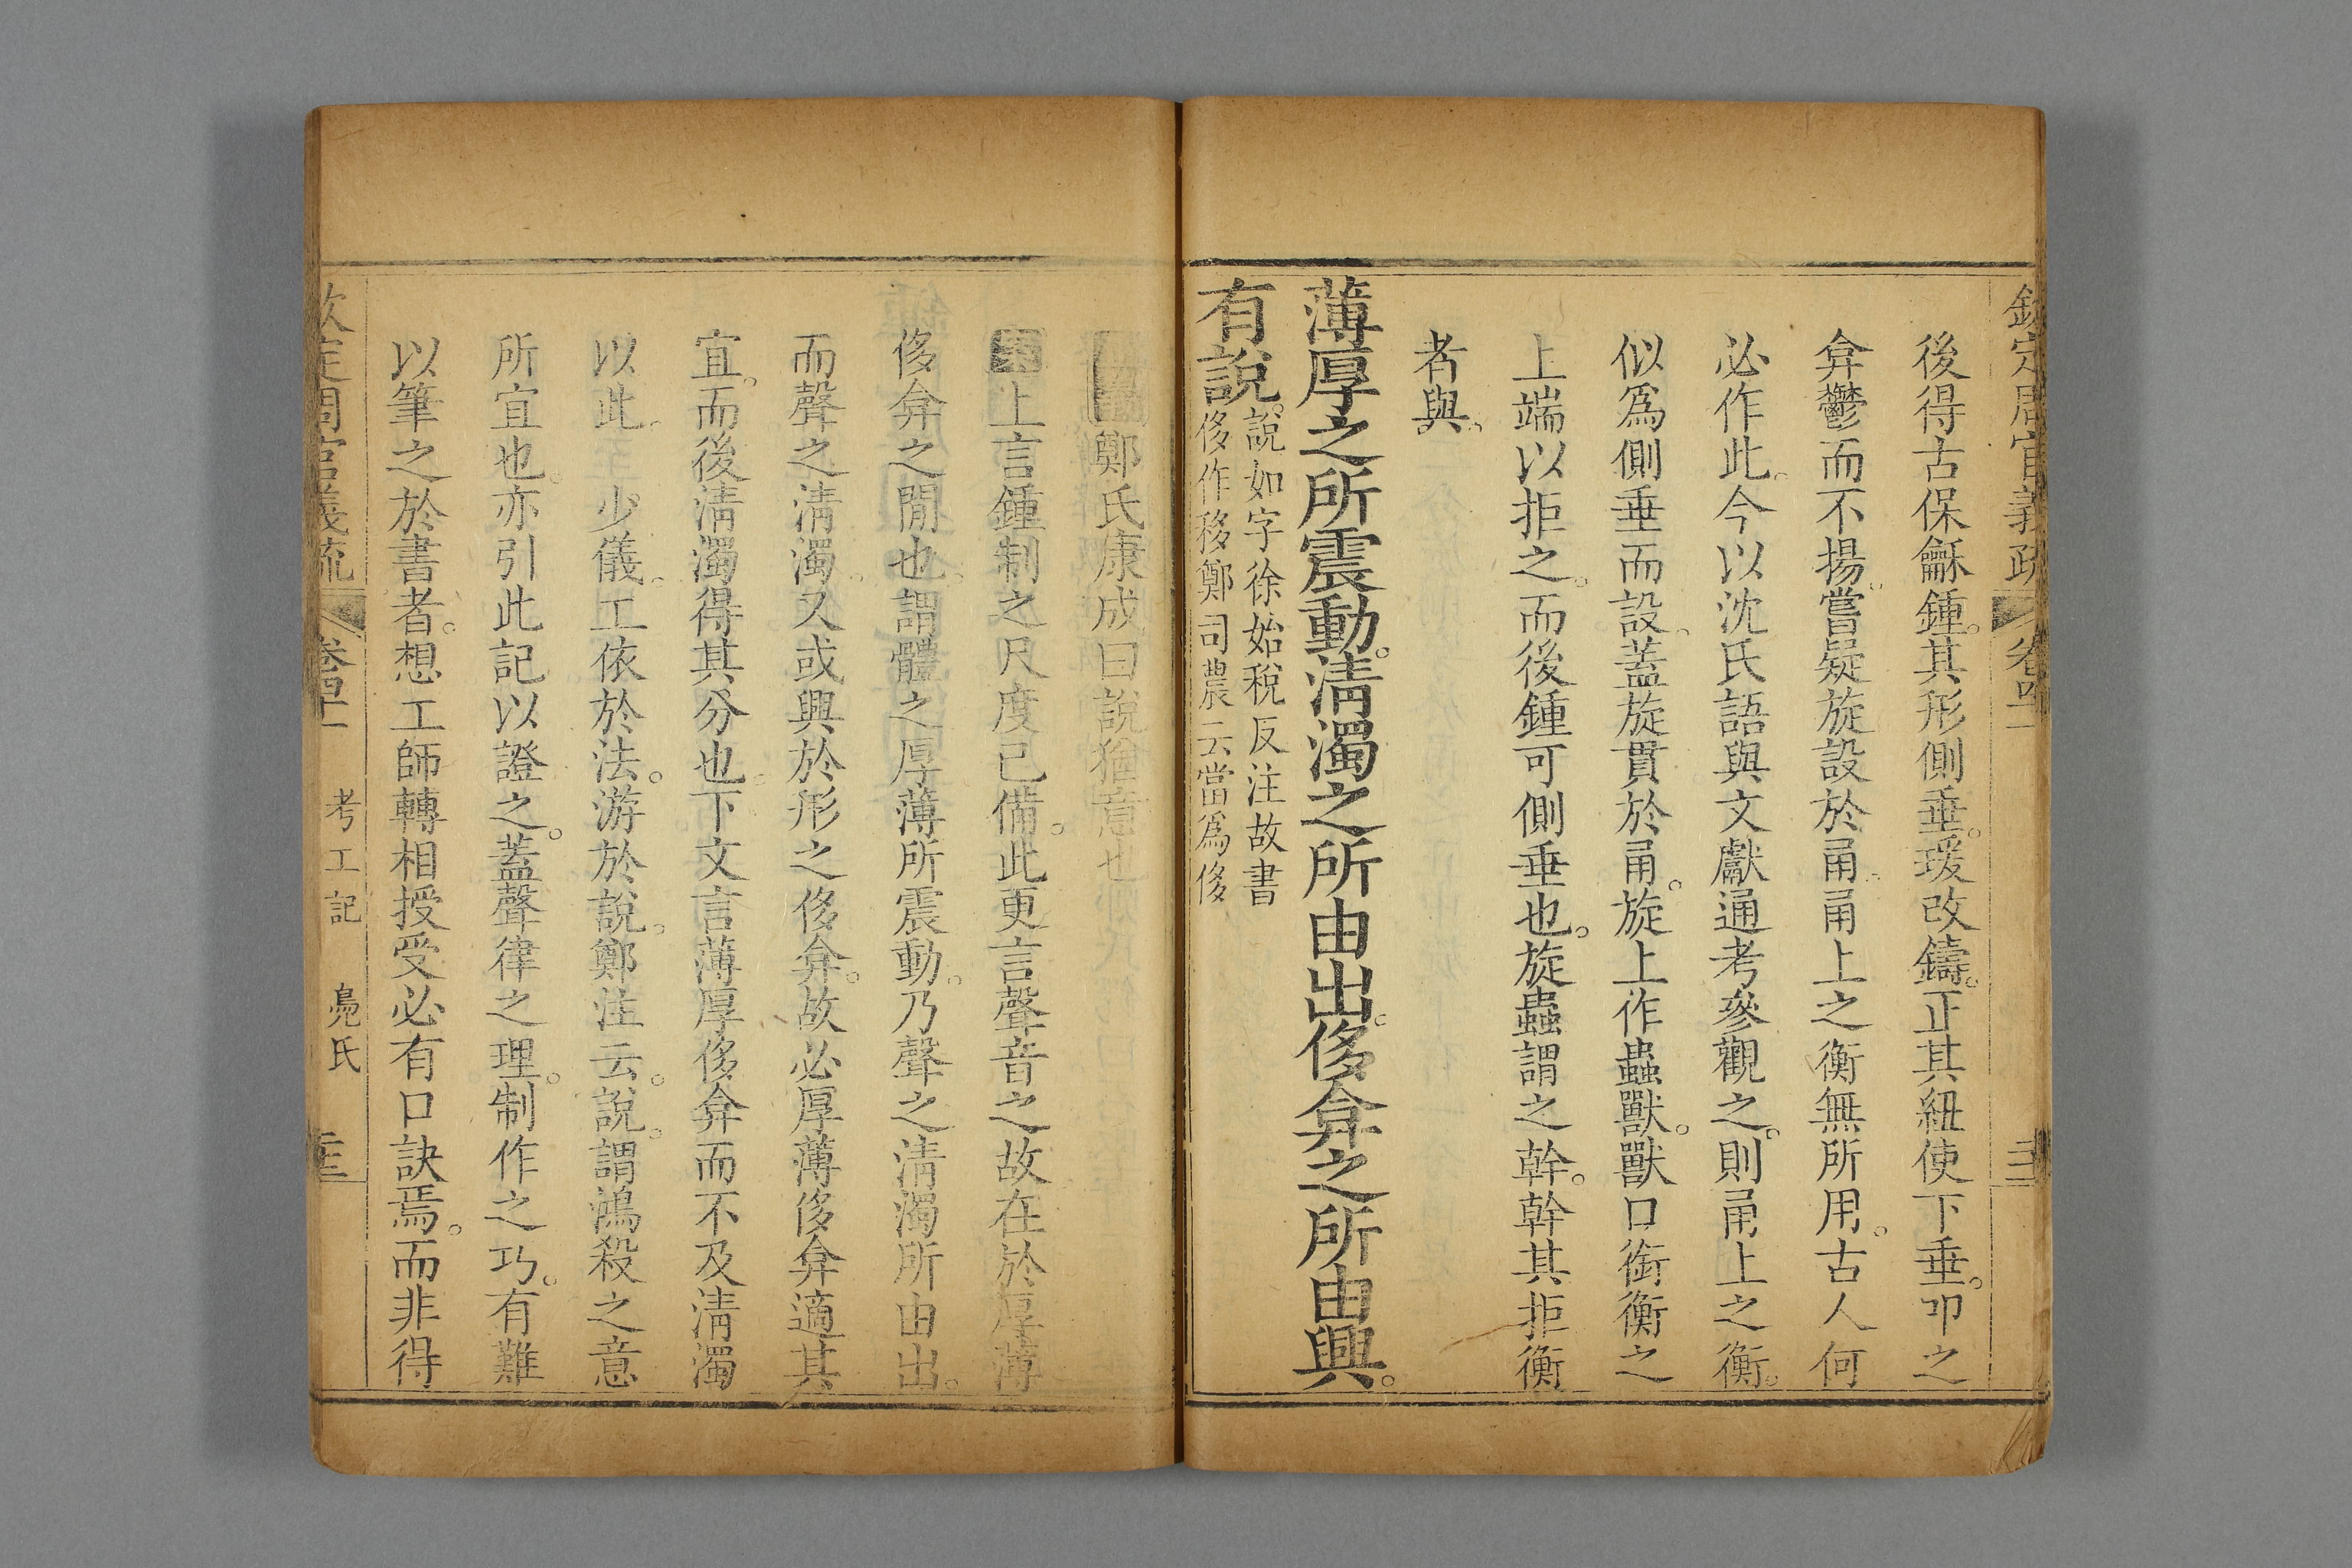 欽定周官義疏 卷四十一
後得古保龢鍾。其形側垂。瑗改鑄。正其紐使下垂。叩之
弇鬱而不揚。嘗疑旋設於甬甬上之衡無所用。古人何
必作此。今以沈氏語與文獻通考參觀之。則甬上之衡。
似爲側垂而設。蓋旋貫於甬。旋上作蟲獸。獸口銜衡之
上端以拒之。而後鍾可側垂也。旋蟲謂之幹。幹其拒衡
者與。
薄厚之所震動。清濁之所由出。侈弇之所由興。
有說。說如字徐始稅反注故書
侈作移鄭司農云當爲侈
鄭氏康成曰說猶意也
上言鍾制之尺度已備。此更言聲音之故在於厚薄
侈弇之閒也。謂體之厚薄所震動。乃聲之清濁所由出。
而聲之清濁。又或興於形之侈弇。故必厚薄侈弇適其
宜。而後清濁得其分也。下文言薄厚侈弇而不及清濁
以此。少儀。工依於法。游於說。鄭注云。說。謂鴻殺之意
所宜也。亦引此記以證之。蓋聲律之理。制作之巧。有難
以筆之於書者。想工師轉相授受必有口訣焉。而非得
欽定周官義疏 卷四十一 考工記 鳧氏